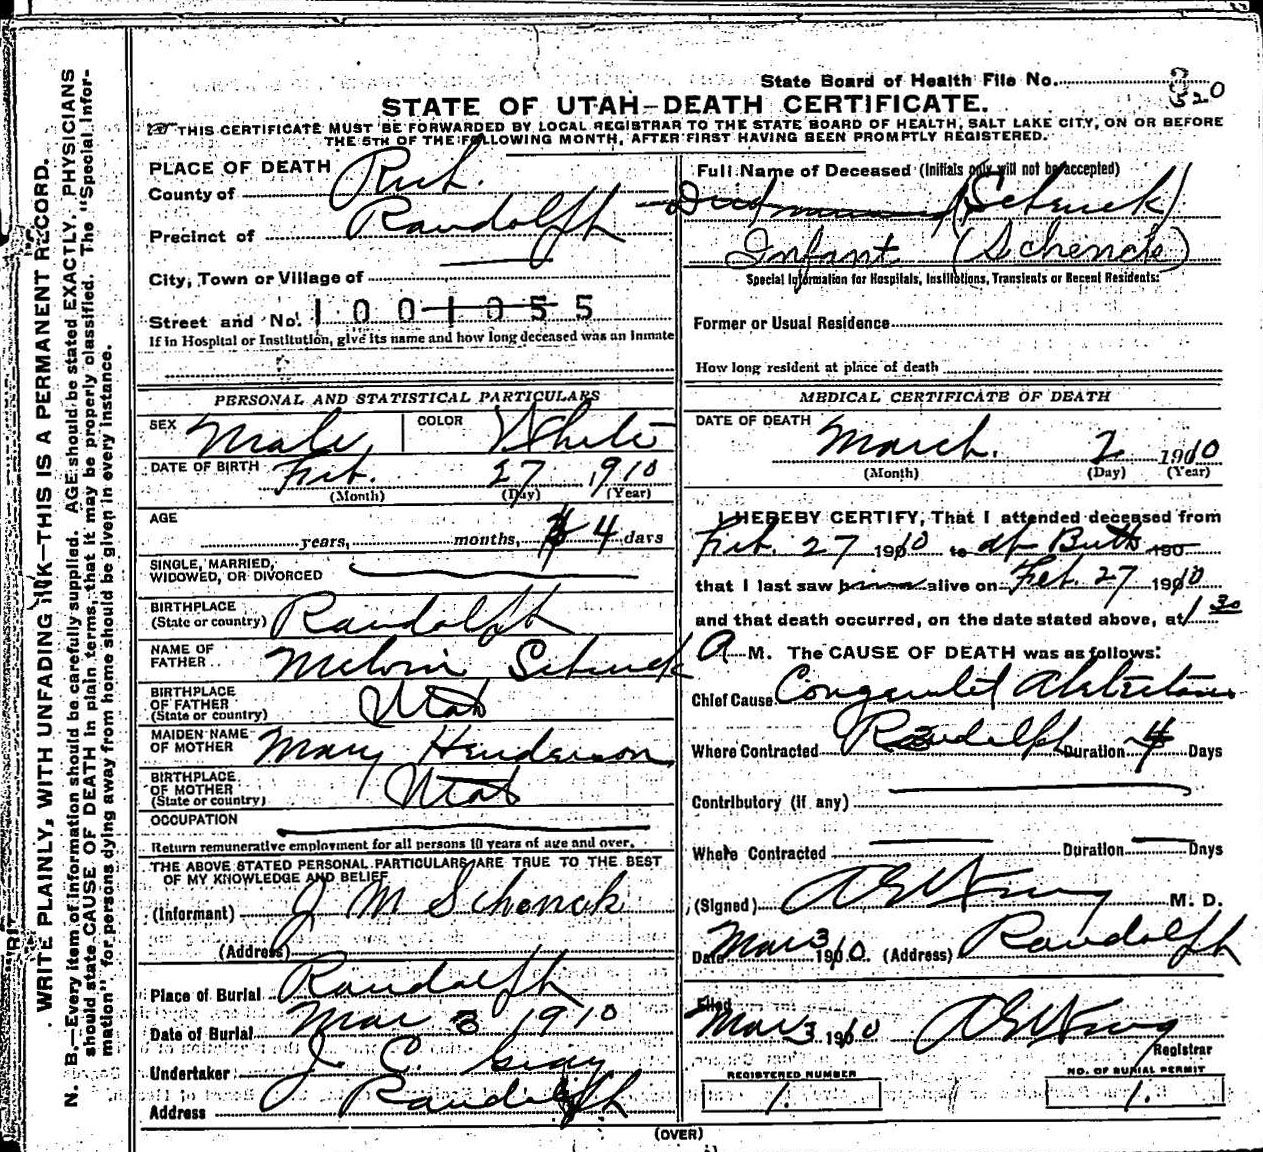 State Board of Health File No. 320
STATE OF UTAH—DEATH CERTIFICATE.
THIS CERTIFICATE MUST BE FORWARDED BY LOCAL REGISTRAR TO THE STATE BOARD OF HEALTH, SALT LAKE CITY, ON OR BEFORE
THE 5TH OF THE FOLLOWING MONTH, AFTER FIRST HAVING BEEN PROMPTLY REGISTERED.
WRITE PLAINLY, WITH UNFADING INK—THIS IS A PERMANENT RECORD.
N. B.—Every item of information should be carefully supplied. AGE should be stated EXACTLY. PHYSICIANS
should state CAUSE OF DEATH in plain terms, that it may be properly classified. The "Special Infor-
mation" for persons dying away from home should be given in every instance.
PLACE OF DEATH
County of Rich.
Precinct of Randolph
City, Town or Village of
Street and No. 1001055
If in Hospital or Institution, give its name and how long deceased was an Inmate
PERSONAL AND STATISTICAL PARTICULARS
SEX Male COLOR White
DATE OF BIRTH Feb. 27 1910
(Month) (Day) (Year)
AGE
years, months, 4 days
SINGLE, MARRIED,
WIDOWED, OR DIVORCED
BIRTHPLACE
(State or country) Randolph
NAME OF
FATHER Melvin Schenck
BIRTHPLACE
OF FATHER
(State or country) Utah
MAIDEN NAME
OF MOTHER Mary Henderson
BIRTHPLACE
OF MOTHER
(State or country) Utah
OCCUPATION
Return remunerative employment for all persons 10 years of age and over.
THE ABOVE STATED PERSONAL PARTICULARS ARE TRUE TO THE BEST
OF MY KNOWLEDGE AND BELIEF
(Informant) J M Schenck
(Address)
Place of Burial Randolph
Date of Burial Mar 3 1910
Undertaker J. C. Gray
Address Randolph
Full Name of Deceased (Initials only will not be accepted)
Schenck
Infant (Schenck)
Special Information for Hospitals, Institutions, Transients or Recent Residents:
Former or Usual Residence
How long resident at place of death
MEDICAL CERTIFICATE OF DEATH
DATE OF DEATH
March. 2 1910
(Month) (Day) (Year)
I HEREBY CERTIFY, That I attended deceased from
Feb. 27 1910 to at Birth 190
that I last saw him alive on Feb. 27 1910
and that death occurred, on the date stated above, at 1 30
A M. The CAUSE OF DEATH was as follows:
Chief Cause
Where Contracted Randolph Duration 4 Days
Contributory (if any)
Where Contracted Duration Days
(Signed) M. D.
Date Mar 3 1910. (Address) Randolph
Filed
Mar 3 1910
Registrar
REGISTERED NUMBER
1.
NO. OF BURIAL PERMIT
1.
(OVER)